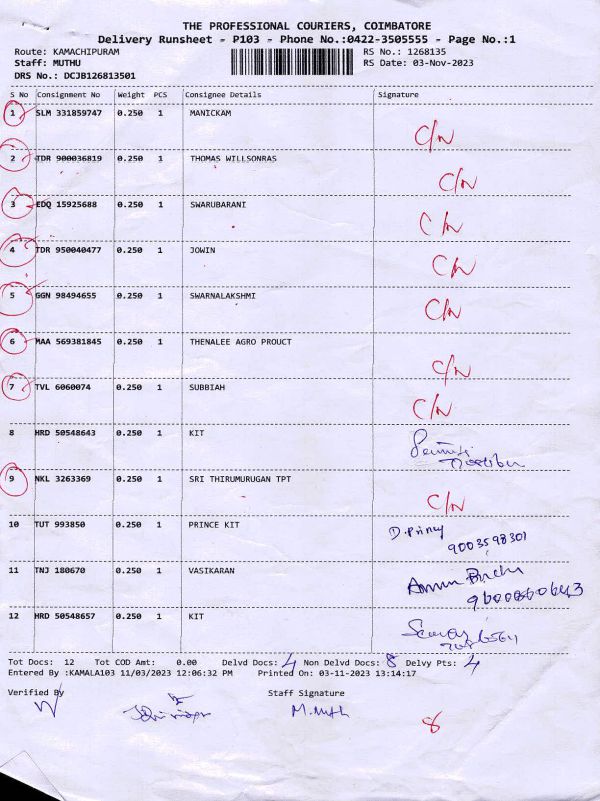 THE PROFESSIONAL COURIERS, COIMBATORE
Delivery Runsheet - P103 - Phone No.:0422-3505555 - Page No.:1
Route: KAMACHIPURAM RS No.: 1268135
Staff: MUTHU RS Date: 03-Nov-2023
DRS No.: DCJB126813501
S No Consignment No Weight PCS Consignee Details Signature
1 SLM 331859747 0.250 1 MANICKAM
C/N
2 TDR 900036819 0.250 1 THOMAS WILLSONRAS
C/N
3 EDQ 15925688 0.250 1 SWARUBARANI
C/N
4 TDR 950040477 0.250 1 JOWIN
C/N
5 GGN 98494655 0.250 1 SWARNALAKSHMI
C/N
6 MAA 569381845 0.250 1 THENALEE AGRO PROUCT
C/N
7 TVL 6060074 0.250 1 SUBBIAH
C/N
8 HRD 50548643 0.250 1 KIT
9 NKL 3263369 0.250 1 SRI THIRUMURUGAN TPT
C/N
10 TUT 993850 0.250 1 PRINCE KIT D. Princy
9003598301
11 TNJ 180670 0.250 1 VASIKARAN
12 HRD 50548657 0.250 1 KIT
Tot Docs: 12 Tot COD Amt: 0.00 Delvd Docs: 4 Non Delvd Docs: 8 Delvy Pts: 4
Entered By :KAMALA103 11/03/2023 12:06:32 PM Printed On: 03-11-2023 13:14:17
Verified By Staff Signature
M. Muth
8